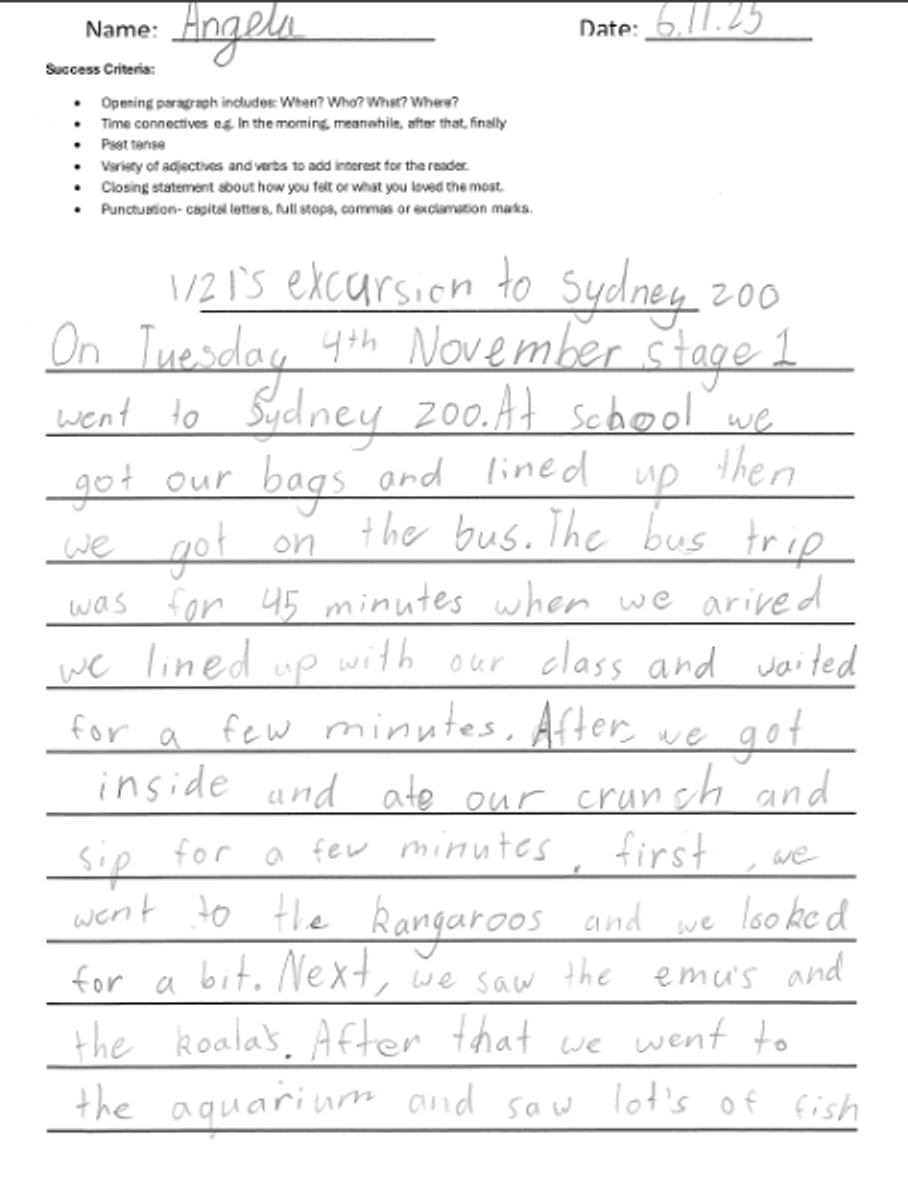 Name: Angela
Date: 6.11.25
Success Criteria:
• Opening paragraph includes: When? Who? What? Where?
• Time connectives e.g. In the morning, meanwhile, after that, finally
• Past tense
• Variety of adjectives and verbs to add interest for the reader.
• Closing statement about how you felt or what you loved the most.
• Punctuation- capital letters, full stops, commas or exclamation marks.
1/21's excursion to Sydney zoo
On Tuesday 4th November stage 1
went to Sydney zoo. At school we
got our bags and lined up then
we got on the bus. The bus trip
was for 45 minutes when we arived
we lined up with our class and vaited
for a few minutes. After we got
inside and ate our crunch and
sip for a few minutes. first, we
went to the kangaroos and we looked
for a bit. Next, we saw the emu's and
the koala's. After that we went to
the aquarium and saw lot's of fish